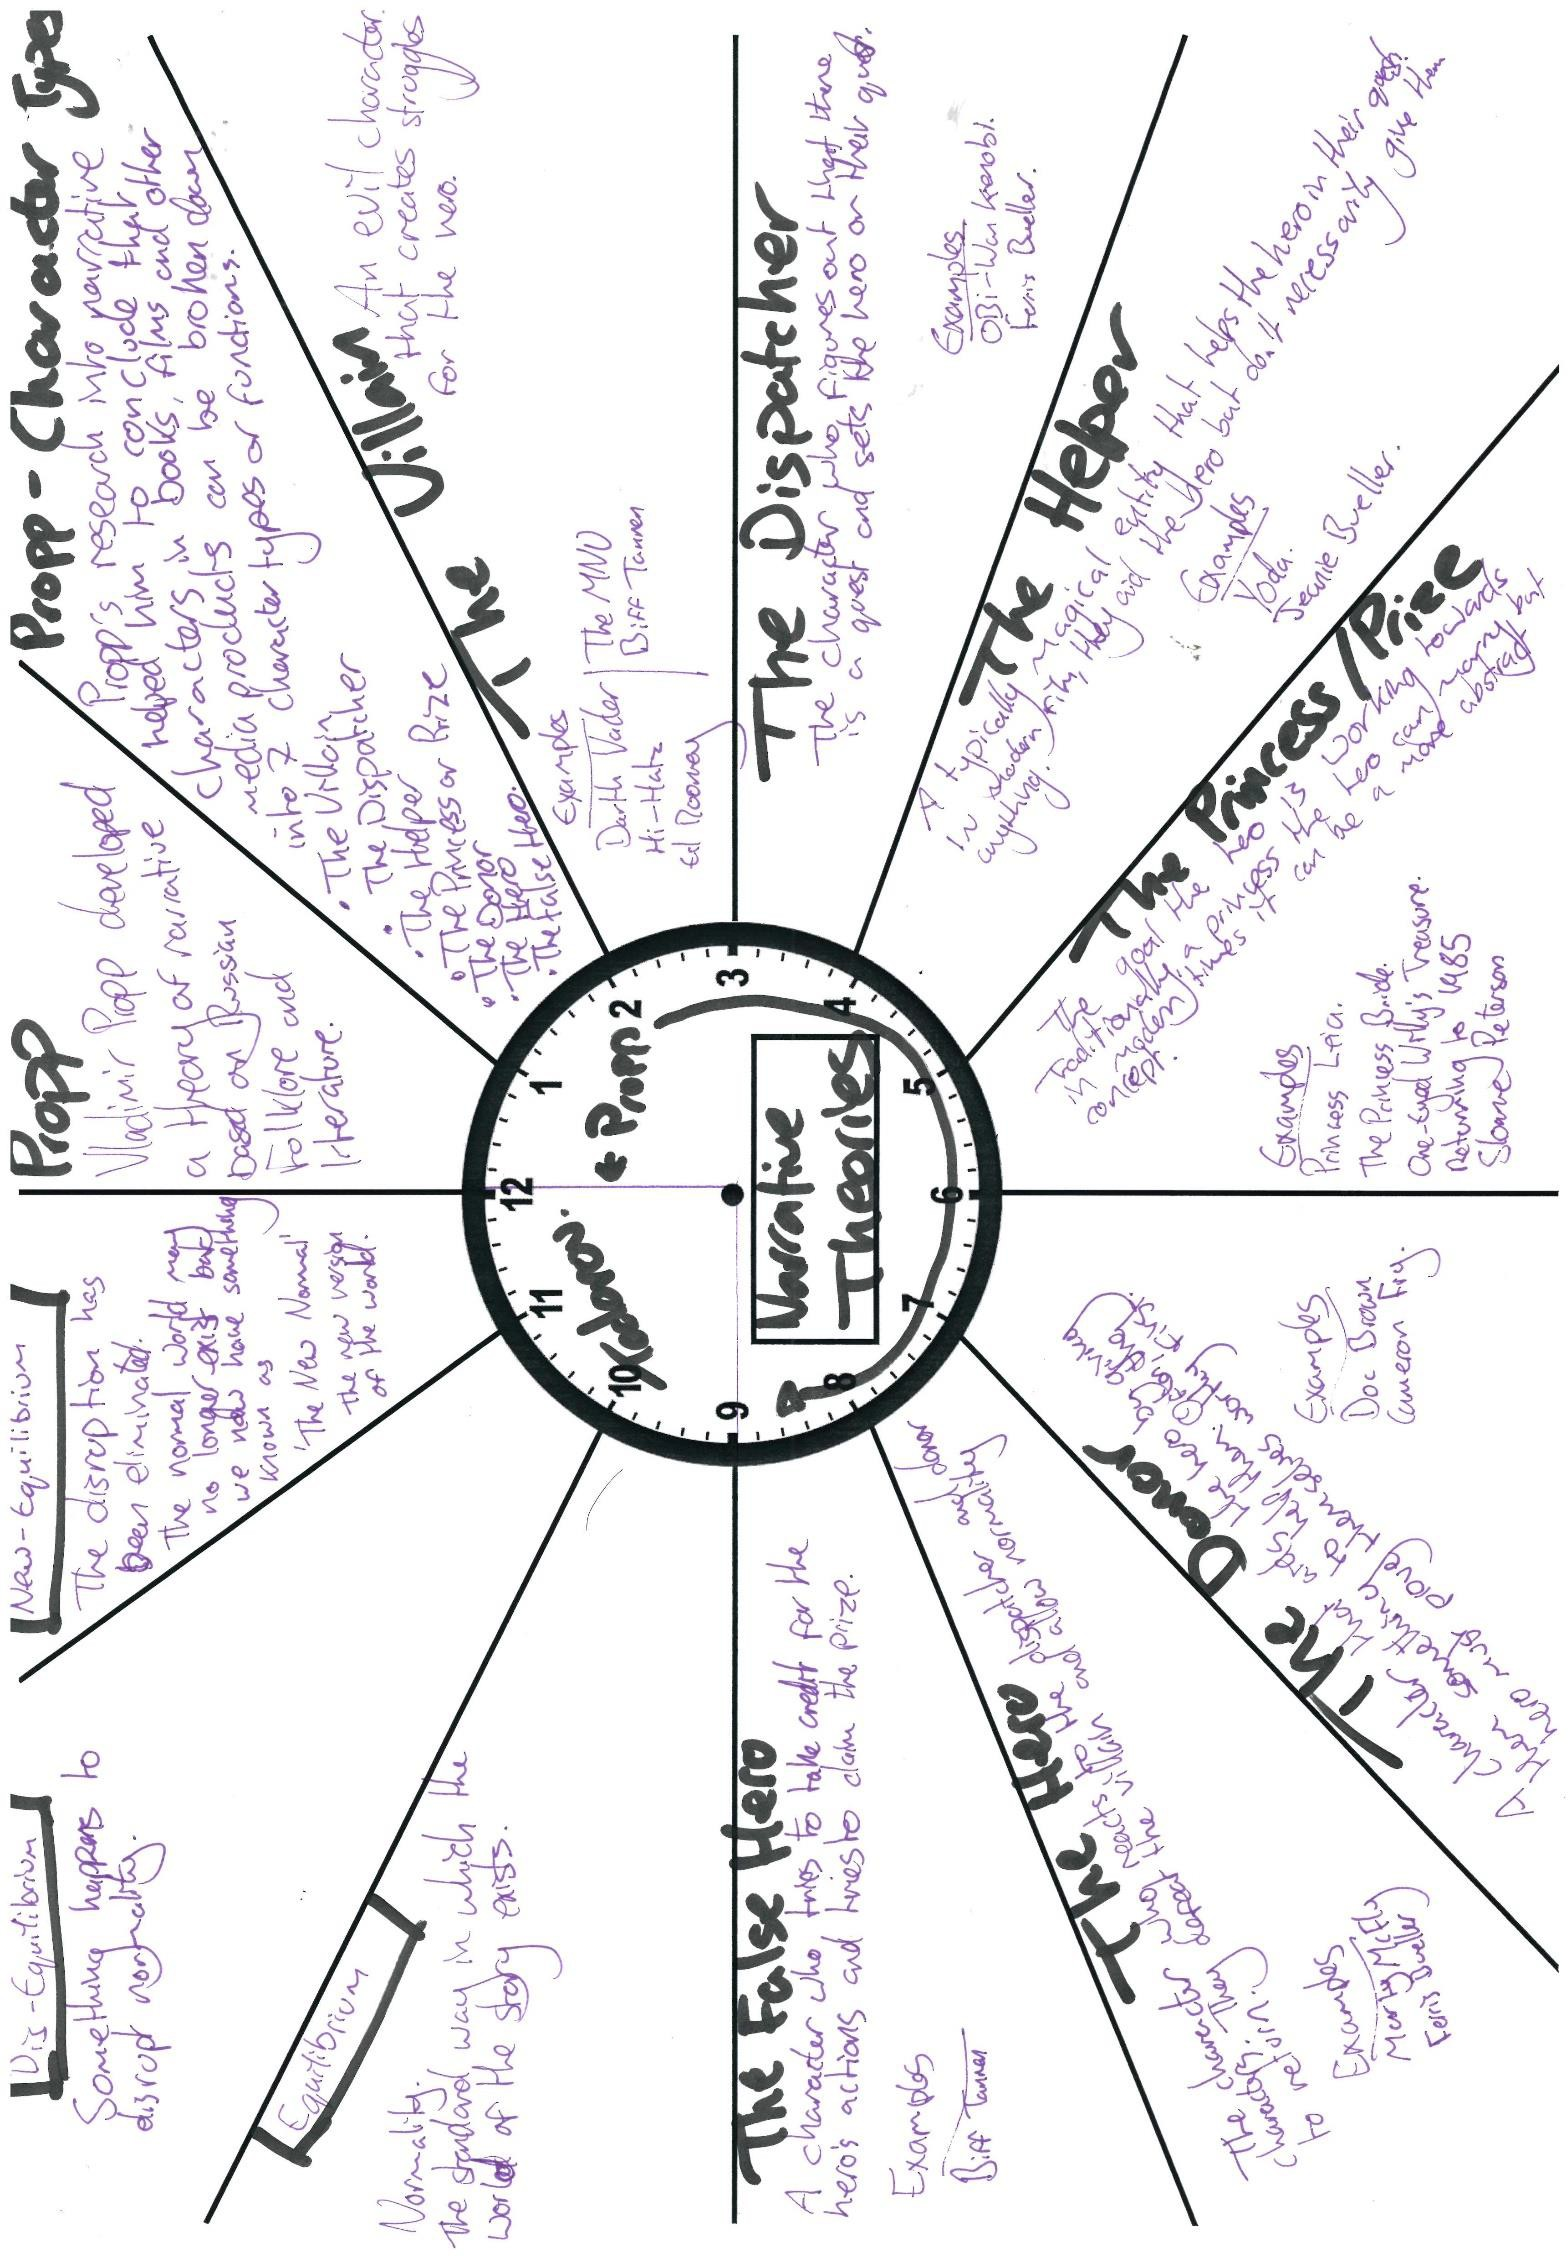 Propp
Vladimir Propp developed
a theory of narrative
based on Russian
Folklore and
literature.
Propp - Character Types
Propp's research into narrative
helped him to conclude that
characters in books, films and other
media products can be broken down
into 7 character types or functions.
• The Villain
• The Dispatcher
• The Helper
• The Princess or Prize
• The Donor
• The Hero
• The False Hero.
The Villain
An evil character
that creates struggles
for the hero.
Examples
Darth Vader
Hi-Hats
Ed Rooney
The MNU
Biff Tannen
The Dispatcher
The character who figures out that there
is a quest and sets the hero on their quest.
Examples
OBi-Wan Kenobi.
Ferris Bueller.
The Helper
A typically magical entity that helps the hero in their quest.
In modern film, they aid the hero but don't necessarily give them
anything.
Examples
Yoda.
Jeanie Bueller.
The Princess/Prize
The goal the hero is working towards
Traditionally a princess the hero can marry but
in modern times it can be a more abstract
concept.
Examples
Princess Leia.
The Princess Bride.
One-Eyed Willy's Treasure.
Returning to 1985
Sloane Peterson
The Donor
A character that aids the hero by giving
them something to help them. Often, the
hero must prove themselves worthy first.
Examples
Doc Brown
Cameron Frye.
The Hero
The character who reacts to the dispatcher and donor
characters. They defeat the villain and allow normality
to return.
Examples
Marty McFly
Ferris Bueller
The False Hero
A character who tries to take credit for the
hero's actions and tries to claim the prize.
Examples
Biff Tannen
Equilibrium
Normality.
The standard way in which the
world of the story exists.
Dis-Equilibrium
Something happens to
disrupt normality.
New-Equilibrium
The disruption has
been eliminated.
The normal world may
no longer exist but
we now have something
known as
'The New Normal'
the new version
of the world.
12
1
2
3
4
5
6
7
8
9
10
11
Todorov.
Propp
Narrative
Theories